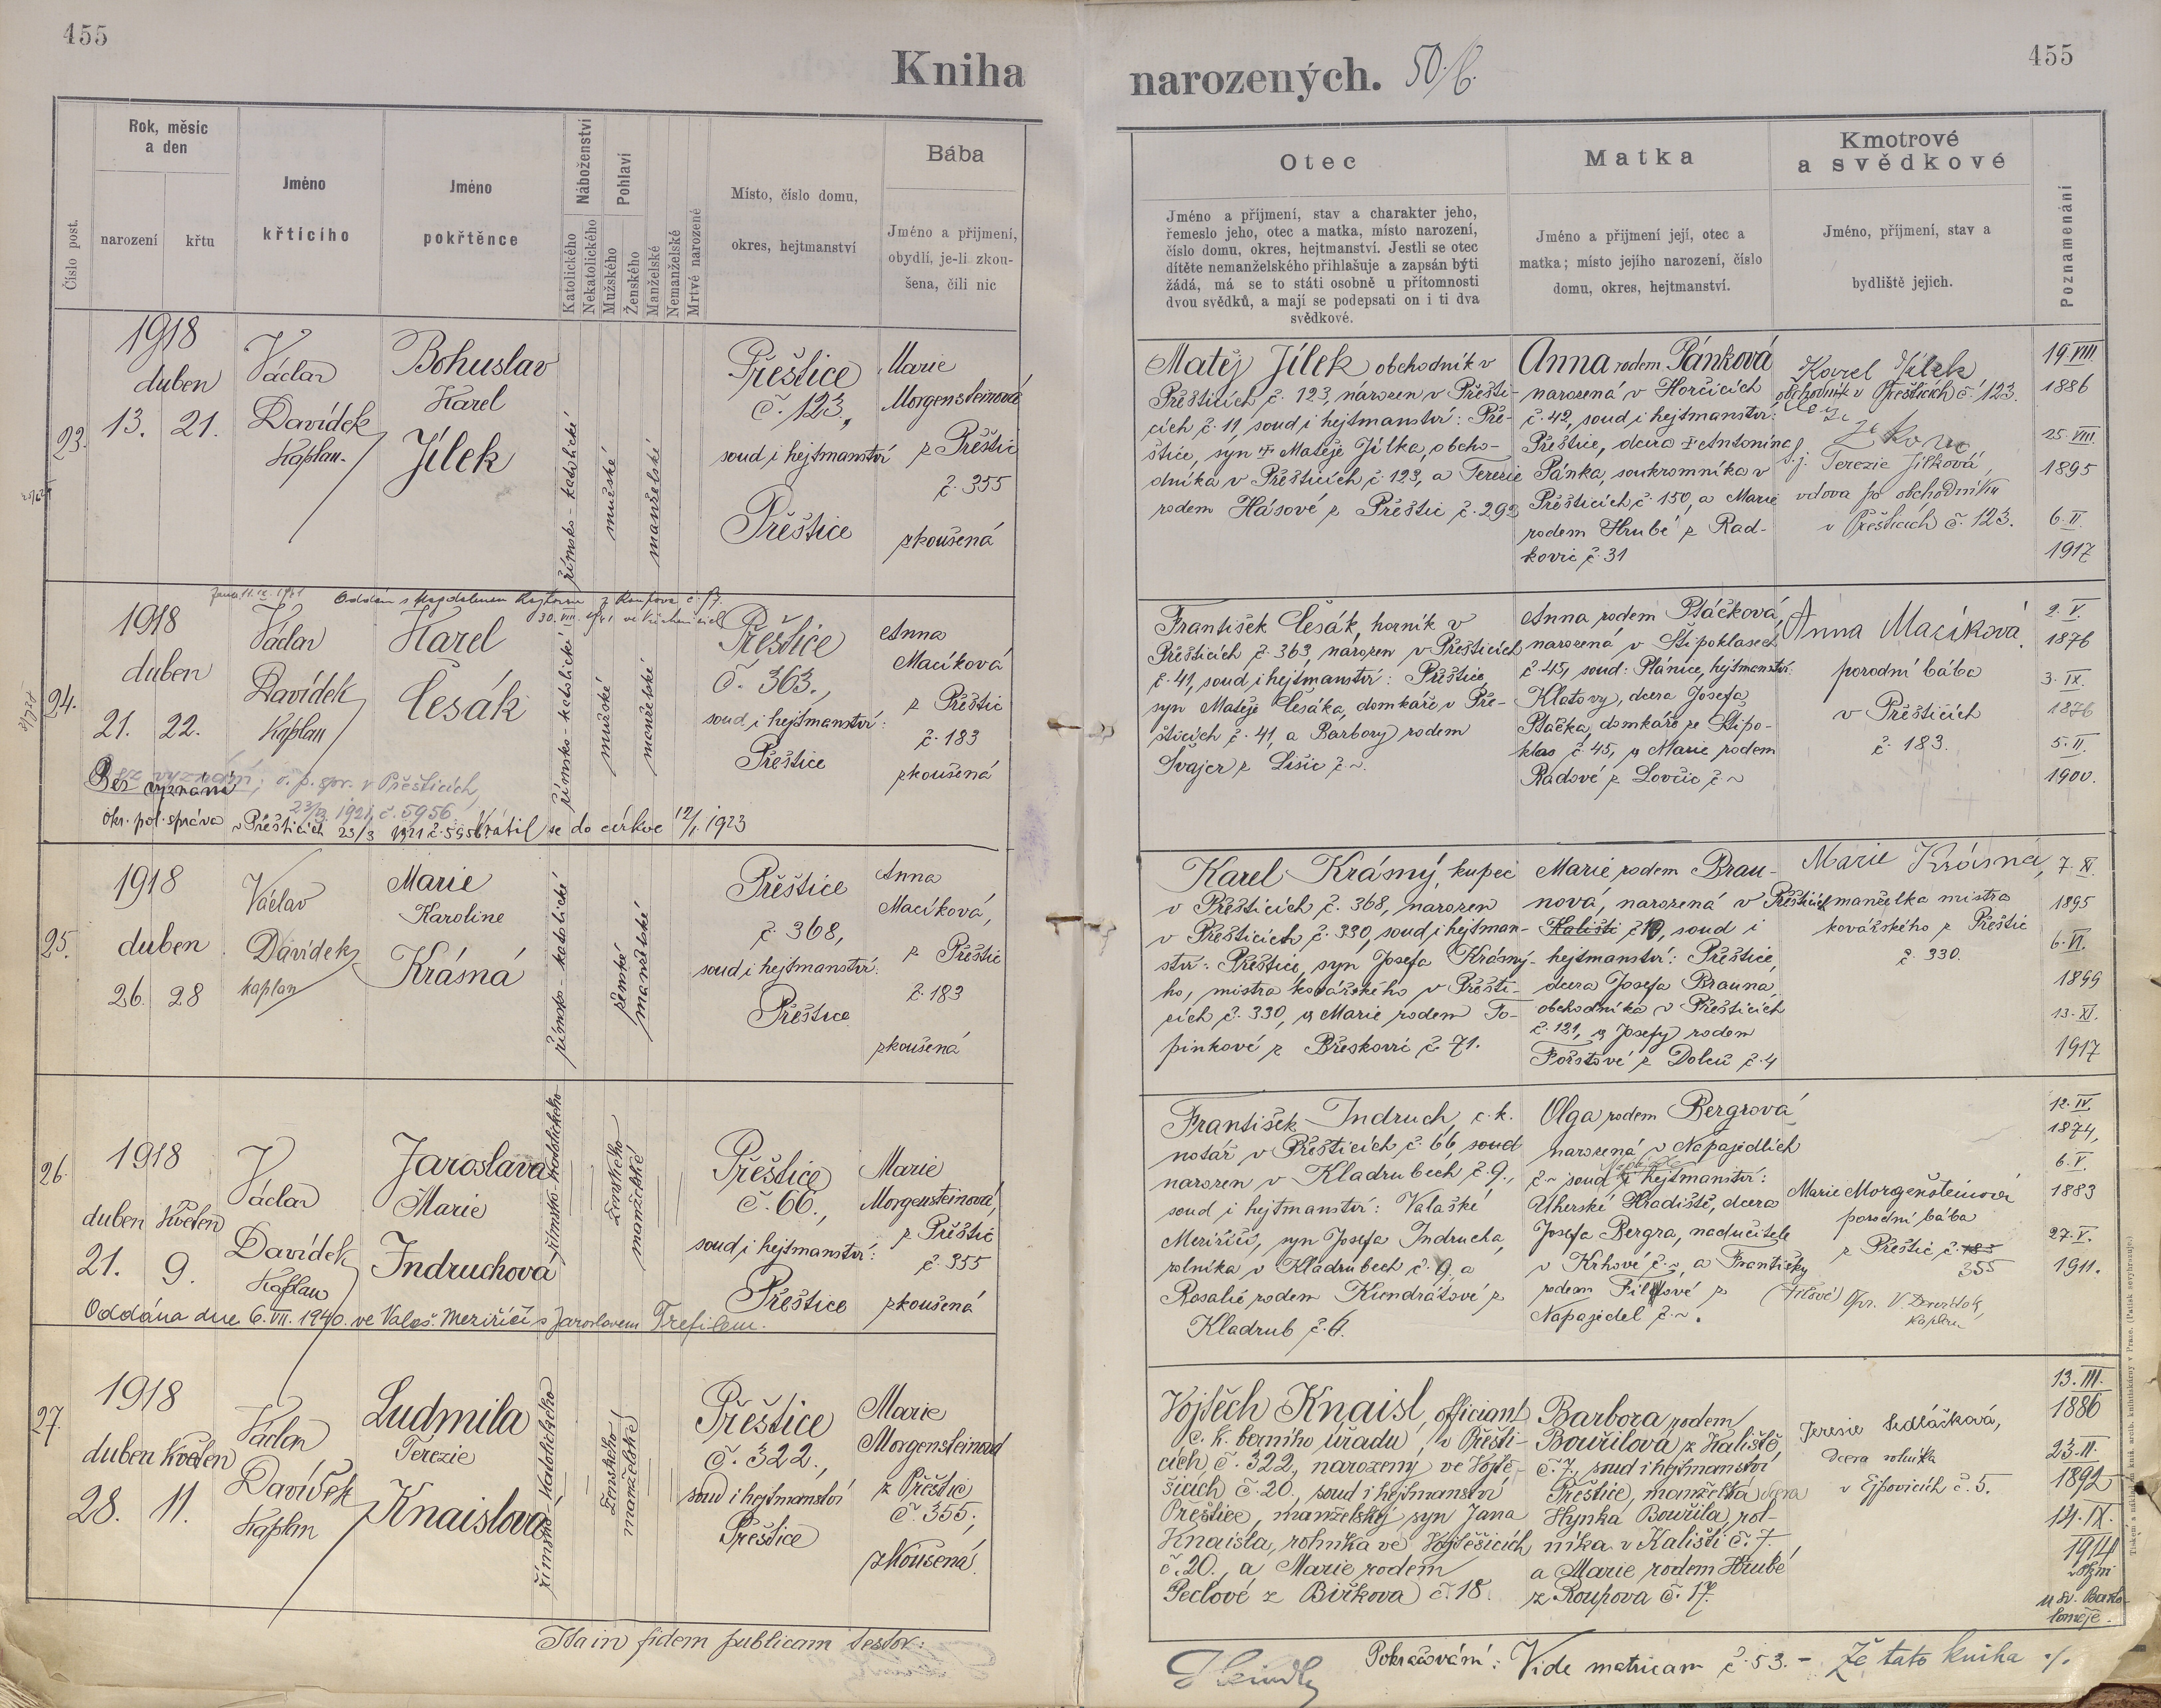 455
455
Kniha
narozených. 50/6.
Číslo post.
Rok, měsíc
a den
narození
křtu
Jméno
křtícího
Jméno
pokřtěnce
Náboženství
Katolického
Nekatolického
Pohlaví
Mužského
Ženského
Manželské
Nemanželské
Mrtvě narozené
Místo, číslo domu,
okres, hejtmanství
Bába
Jméno a příjmení,
obydlí, je-li zkou-
šena, čili nic
Otec
Jméno a příjmení, stav a charakter jeho,
řemeslo jeho, otec a matka, místo narození,
číslo domu, okres, hejtmanství. Jestli se otec
dítěte nemanželského přihlašuje a zapsán býti
žádá, má se to státi osobně u přítomnosti
dvou svědků, a mají se podepsati on i ti dva
svědkové.
Matka
Jméno a příjmení její, otec a
matka; místo jejího narození, číslo
domu, okres, hejtmanství.
Kmotrové
a svědkové
Jméno, příjmení, stav a
bydliště jejich.
Poznamenání
23.
1918
duben
13. 21.
Václav
Davídek
Kaplan.
Bohuslav
Karel
Jílek
římsko-katolické
mužské
manželské
Přeštice
č. 123,
soud i hejtmanství
Přeštice
Marie
Morgensteinová
z Přeštic
č. 355
zkoušená
Matěj Jílek obchodník v
Přešticích č. 123, narozen v Přešti-
cích č. 11, soud i hejtmanství: Pře-
štice, syn † Matěje Jílka, obcho-
dníka v Přešticích č. 123, a Terezie
rodem Hásové z Přeštic č. 292
Anna rodem Pánková
narozená v Horčicích
č. 42, soud i hejtmanství:
Přeštice, dcera † Antonína
Pánka, soukromníka v
Přešticích č. 150, a Marie
rodem Hrubé z Rad-
kovic č. 31
Karel Jílek
obchodník v Přešticích č. 123.
Terezie Jílková,
vdova po obchodníku
v Přešticích č. 123.
19. VIII.
1886
25. VIII.
1895
6. II.
1917
24.
Oddán s Magdalenou
1918
duben
21. 22.
Václav
Davídek
Kaplan
Karel
Česák
římsko-katolické
mužské
manželské
Přeštice
č. 363.,
soud i hejtmanství:
Přeštice
Anna
Macíková
z Přeštic
č. 183
zkoušená
Bez vyznání; o. p. spr. v Přešticích,
23/3 1921, č. 5956
Bez vyznání
okr. pol. správa v Přešticích 23/3 1921 č. 5956. Vrátil se do církve 12/1. 1923
František Česák, horník v
Přešticích č. 363, narozen v Přešticích
č. 41, soud i hejtmanství: Přeštice,
syn Matěje Česáka, domkáře v Pře-
šticích č. 41, a Barbory rodem
Švajcr z Lišic č. ~.
Anna rodem Ptáčková,
narozená v Štipoklasech
č. 45, soud: Plánice, hejtmanství:
Klatovy, dcera Josefa
Ptáčka, domkáře ze Štipo-
klas č. 45, a Marie rodem
Rádové z Lovčic č. ~
Anna Macíková
porodní bába
v Přešticích
č. 183.
2. V.
1876
3. IX.
1876
5. II.
1900.
25.
1918
duben
26. 28
Václav
Davídek
kaplan
Marie
Karoline
Krásná
římsko-katolické
ženské
manželské
Přeštice
č. 368,
soud i hejtmanství:
Přeštice
Anna
Macíková,
z Přeštic
č. 183
zkoušená
Karel Krásný, kupec
v Přešticích č. 368, narozen
v Přešticích č. 330, soud i hejtman-
ství: Přeštice, syn Josefa Krásný-
ho, mistra kovářského v Přešti-
cích č. 330, a Marie rodem To-
pinkové z Břeskovic č. 71.
Marie rodem Brau-
nová, narozená v Přešticích
Kališti č. 19, soud i
hejtmanství: Přeštice,
dcera Josefa Brauna,
obchodníka v Přešticích
č. 121, a Josefy rodem
Fořstové z Dolců č. 4
Marie Krásná,
manželka mistra
kovářského z Přeštic
č. 330.
7. XI.
1895
6. VI.
1899
13. XI.
1917
26.
1918
duben květen
21. 9.
Václav
Davídek
Kaplan
Jaroslava
Marie
Indruchová
římsko-katolického
ženského
manželské
Přeštice
č. 66.,
soud i hejtmanství:
Přeštice
Marie
Morgensteinová,
z Přeštic
č. 355
zkoušená
Oddána dne 6. VII. 1940. ve Valaš. Meziříčí s Jaroslavem Trefilem.
František Indruch, c. k.
notář v Přešticích č. 66, soud
narozen v Kladrubech č. 9.,
soud i hejtmanství: Valašké
Meziříčí, syn Josefa Indrucha,
rolníka v Kladrubech č. 9, a
Rosalie rodem Kundrátové z
Kladrub č. 6.
Olga rodem Bergrová
narozená v Napajedlích
č. ~ soud i hejtmanství:
Uherské Hradiště, dcera
Josefa Bergra, nadučitele
v Krhové č. ~, a Františky
rodem Filové z (Fílové)
Napajedel č. ~.
Marie Morgensteinová
porodní bába
z Přeštic č. 183
355
Opr. V. Davídek,
kaplan
12. IV.
1874,
6. V.
1883
27. V.
1911.
27.
1918
duben květen
28. 11.
Václav
Davídek
Kaplan
Ludmila
Terezie
Knaislová
římsko-katolického
ženského
manželské
Přeštice
č. 322.,
soud i hejtmanství
Přeštice
Marie
Morgensteinová
z Přeštic
č. 355,
zkoušená.
Vojtěch Knaisl, officiant
c. k. berního úřadu, v Přešti-
cích č. 322, narozený ve Vojtě-
šicích č. 20., soud i hejtmanství
Přeštice, manželský syn Jana
Knaisla, rolníka ve Vojtěšicích
č. 20., a Marie rodem
Peclové z Biřkova č. 18.
Barbora rodem
Bouřilová z Kaliště,
č. 7, soud i hejtmanství
Přeštice, manželská dcera
Hynka Bouřila, rol-
níka v Kališti č. 7.
a Marie rodem Hrubé
z Roupova č. 17.
Terezie Sedláčková,
dcera rolníka
v Ejpovicích č. 5.
13. III.
1886
23. II.
1892
14. IX.
1914
u sv. Barto-
loměje.
Ita in fidem publicam testor:
Pokračování: Vide matricam č. 53. - Že tato kniha ./.